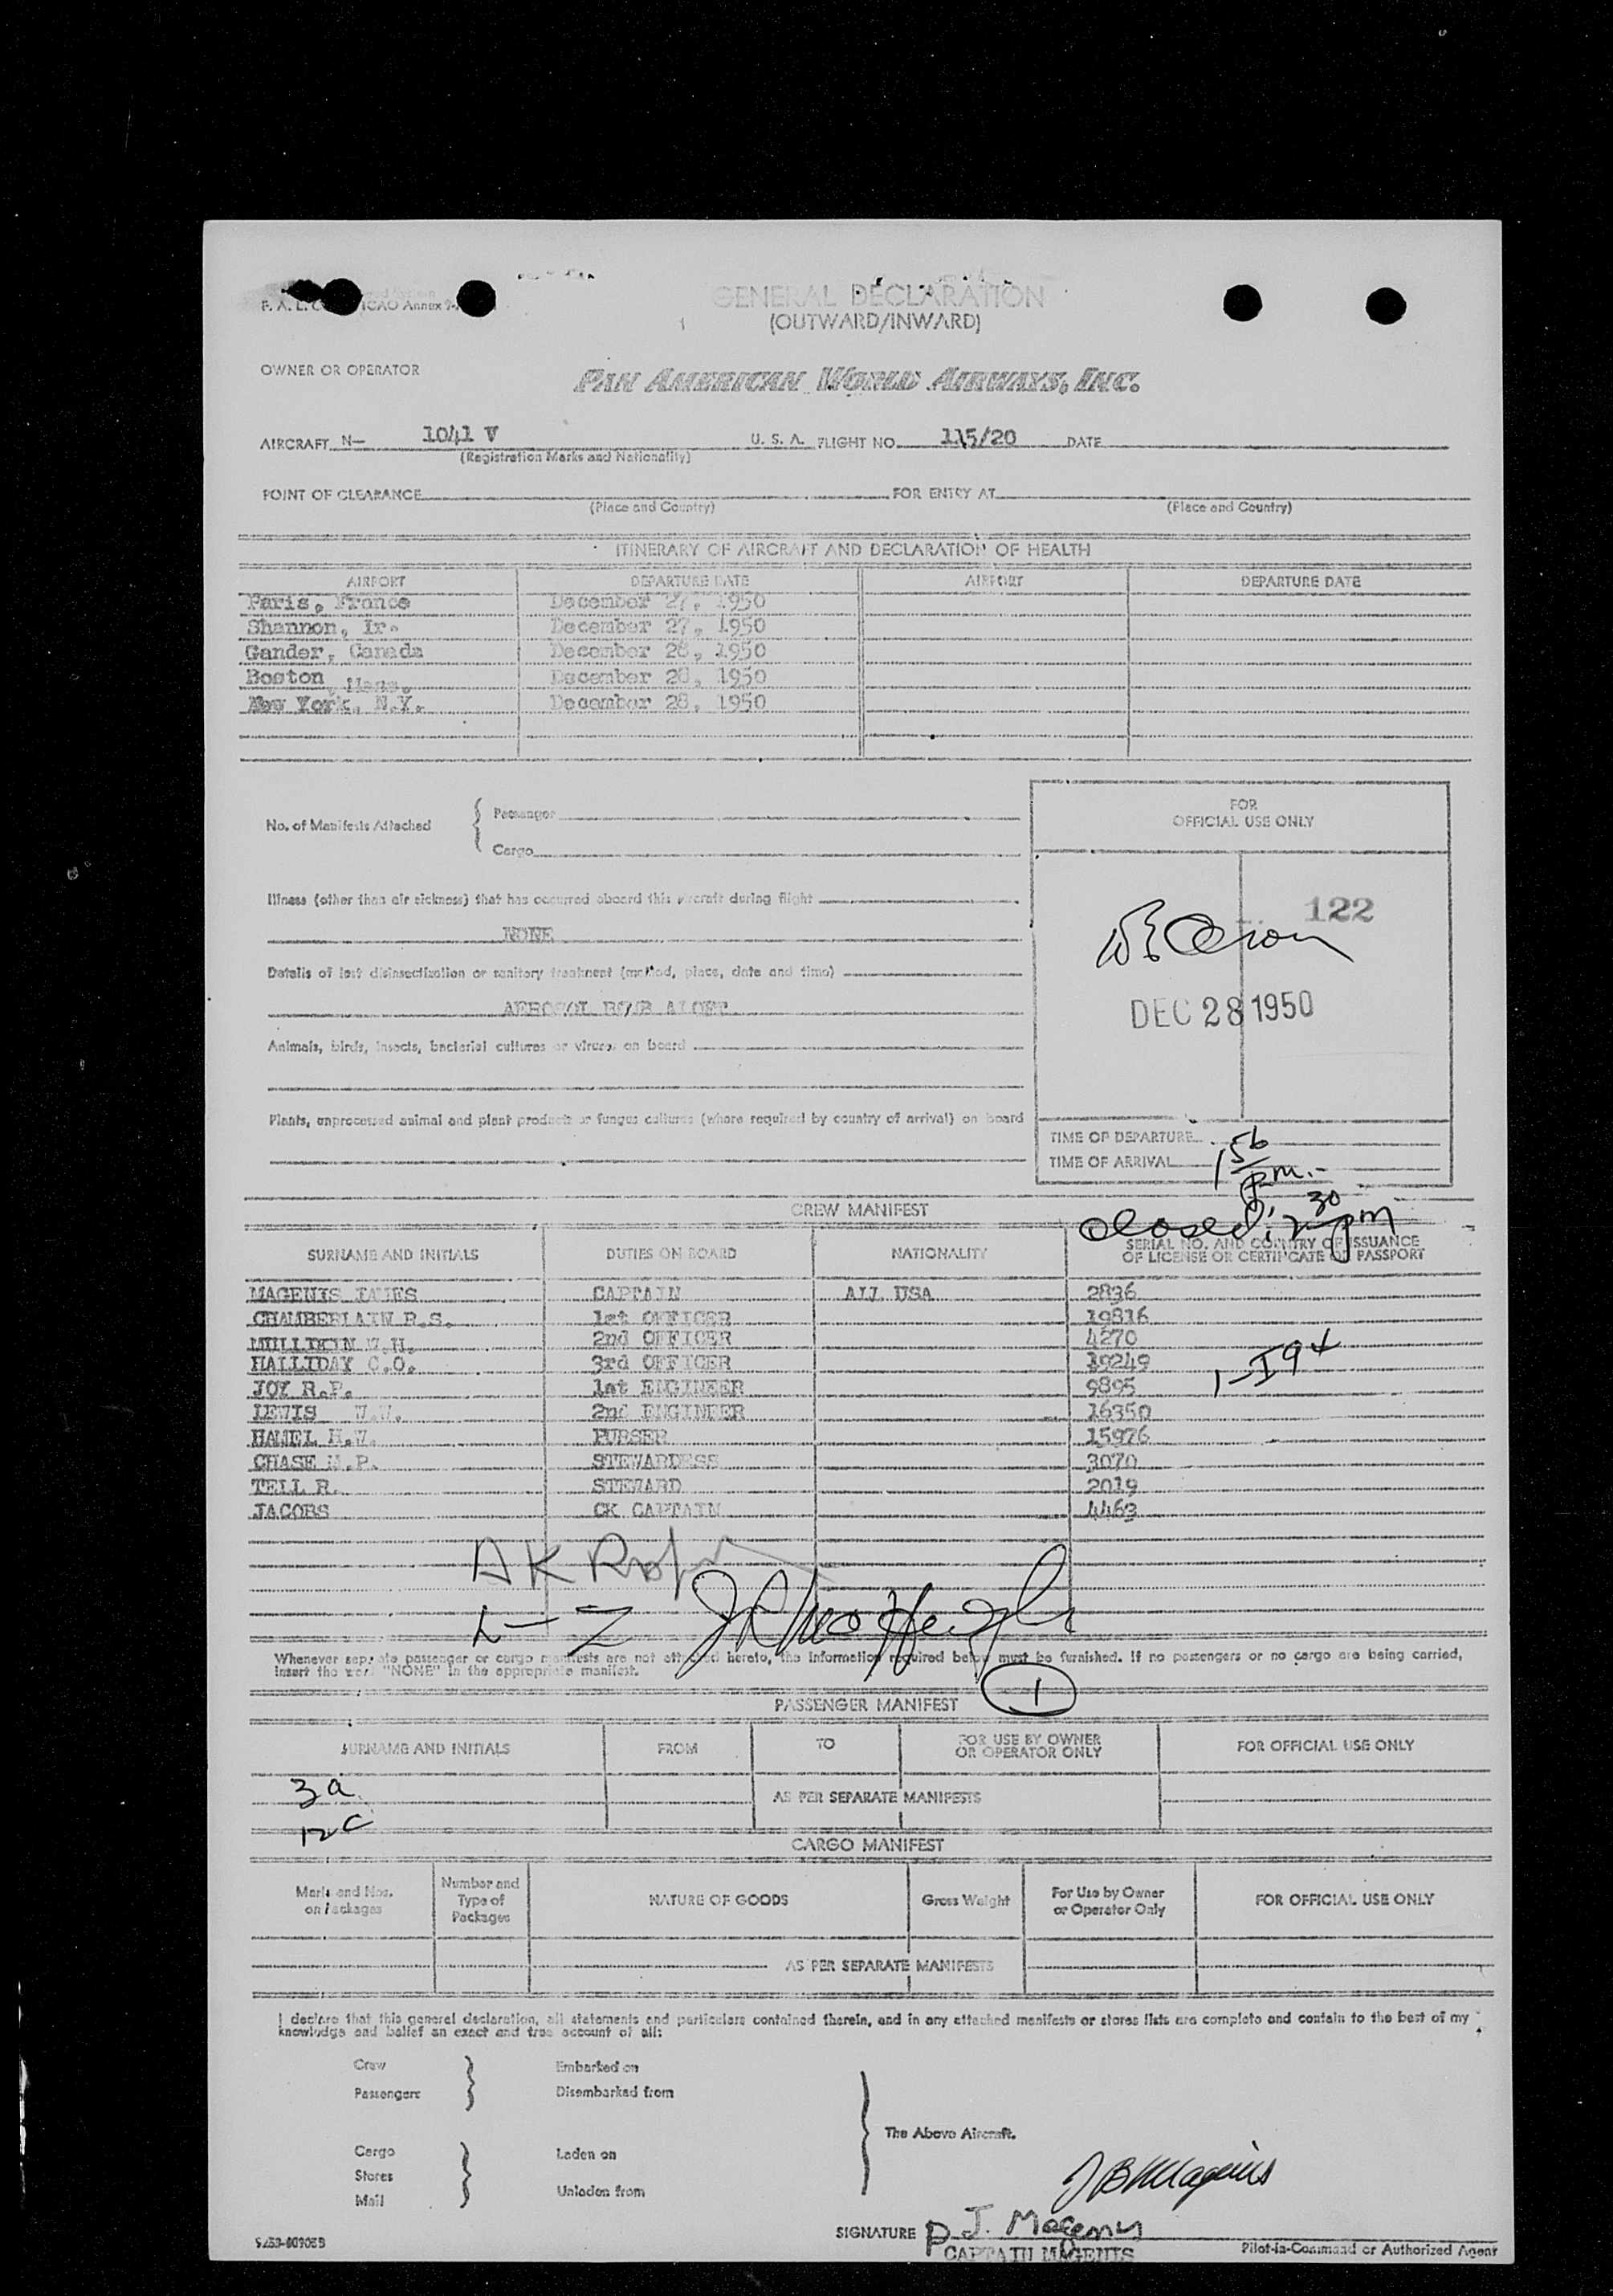 F. A. L. ICAO Annex 9-
GENERAL DECLARATION
(OUTWARD/INWARD)
OWNER OR OPERATOR
PAN AMERICAN WORLD AIRWAYS, INC.
AIRCRAFT N— 1041 V U. S. A. FLIGHT NO. 115/20 DATE
(Registration Marks and Nationality)
POINT OF CLEARANCE FOR ENTRY AT
(Place and Country) (Place and Country)
ITINERARY OF AIRCRAFT AND DECLARATION OF HEALTH
AIRPORT DEPARTURE DATE AIRPORT DEPARTURE DATE
Paris, France December 27, 1950
Shannon, Ir. December 27, 1950
Gander, Canada December 28, 1950
Boston, Mass. December 28, 1950
New York, N.Y. December 28, 1950
FOR
OFFICIAL USE ONLY
No. of Manifests Attached { Passenger
Cargo
Illness (other than air sickness) that has occurred aboard this aircraft during flight
NONE
122
Details of last disinsectization or sanitary treatment (method, place, date and time)
AEROSOL BOMB ALOFT
DEC 28 1950
Animals, birds, insects, bacterial cultures or viruses on board
Plants, unprocessed animal and plant products or fungus cultures (where required by country of arrival) on board
TIME OF DEPARTURE
TIME OF ARRIVAL 1 56 pm.
closed, 2 30 pm
CREW MANIFEST
SURNAME AND INITIALS DUTIES ON BOARD NATIONALITY SERIAL NO. AND COUNTRY OF ISSUANCE OF LICENSE OR CERTIFICATE OR PASSPORT
MAGENIS JAMES CAPTAIN ALL USA 2896
CHAMBERLAIN R.S. 1st OFFICER 19816
MULLIKIN W.H. 2nd OFFICER 4270
HALLIDAY C.O. 3rd OFFICER 19249
1-I94
JOY R.P. 1st ENGINEER 9895
LEWIS W.W. 2nd ENGINEER 16350
HAMEL H.W. PURSER 15976
CHASE M.P. STEWARDESS 3070
TELL R. STEWARD 2019
JACOBS CK CAPTAIN 4463
A K
L-Z
Whenever separate passenger or cargo manifests are not attached hereto, the information required below must be furnished. If no passengers or no cargo are being carried,
insert the word "NONE" in the appropriate manifest.
PASSENGER MANIFEST 1
SURNAME AND INITIALS FROM TO FOR USE BY OWNER OR OPERATOR ONLY FOR OFFICIAL USE ONLY
3a
AS PER SEPARATE MANIFESTS
12c
CARGO MANIFEST
Marks and Nos. on Packages Number and Type of Packages NATURE OF GOODS Gross Weight For Use by Owner or Operator Only FOR OFFICIAL USE ONLY
AS PER SEPARATE MANIFESTS
I declare that this general declaration, all statements and particulars contained therein, and in any attached manifests or stores lists are complete and contain to the best of my
knowledge and belief an exact and true account of all:
Crew Embarked on
Passengers Disembarked from
The Above Aircraft.
Cargo Laden on
Stores
Mail Unladen from
J B Magenis
SIGNATURE
CAPTAIN MAGENIS
Pilot-in-Command or Authorized Agent